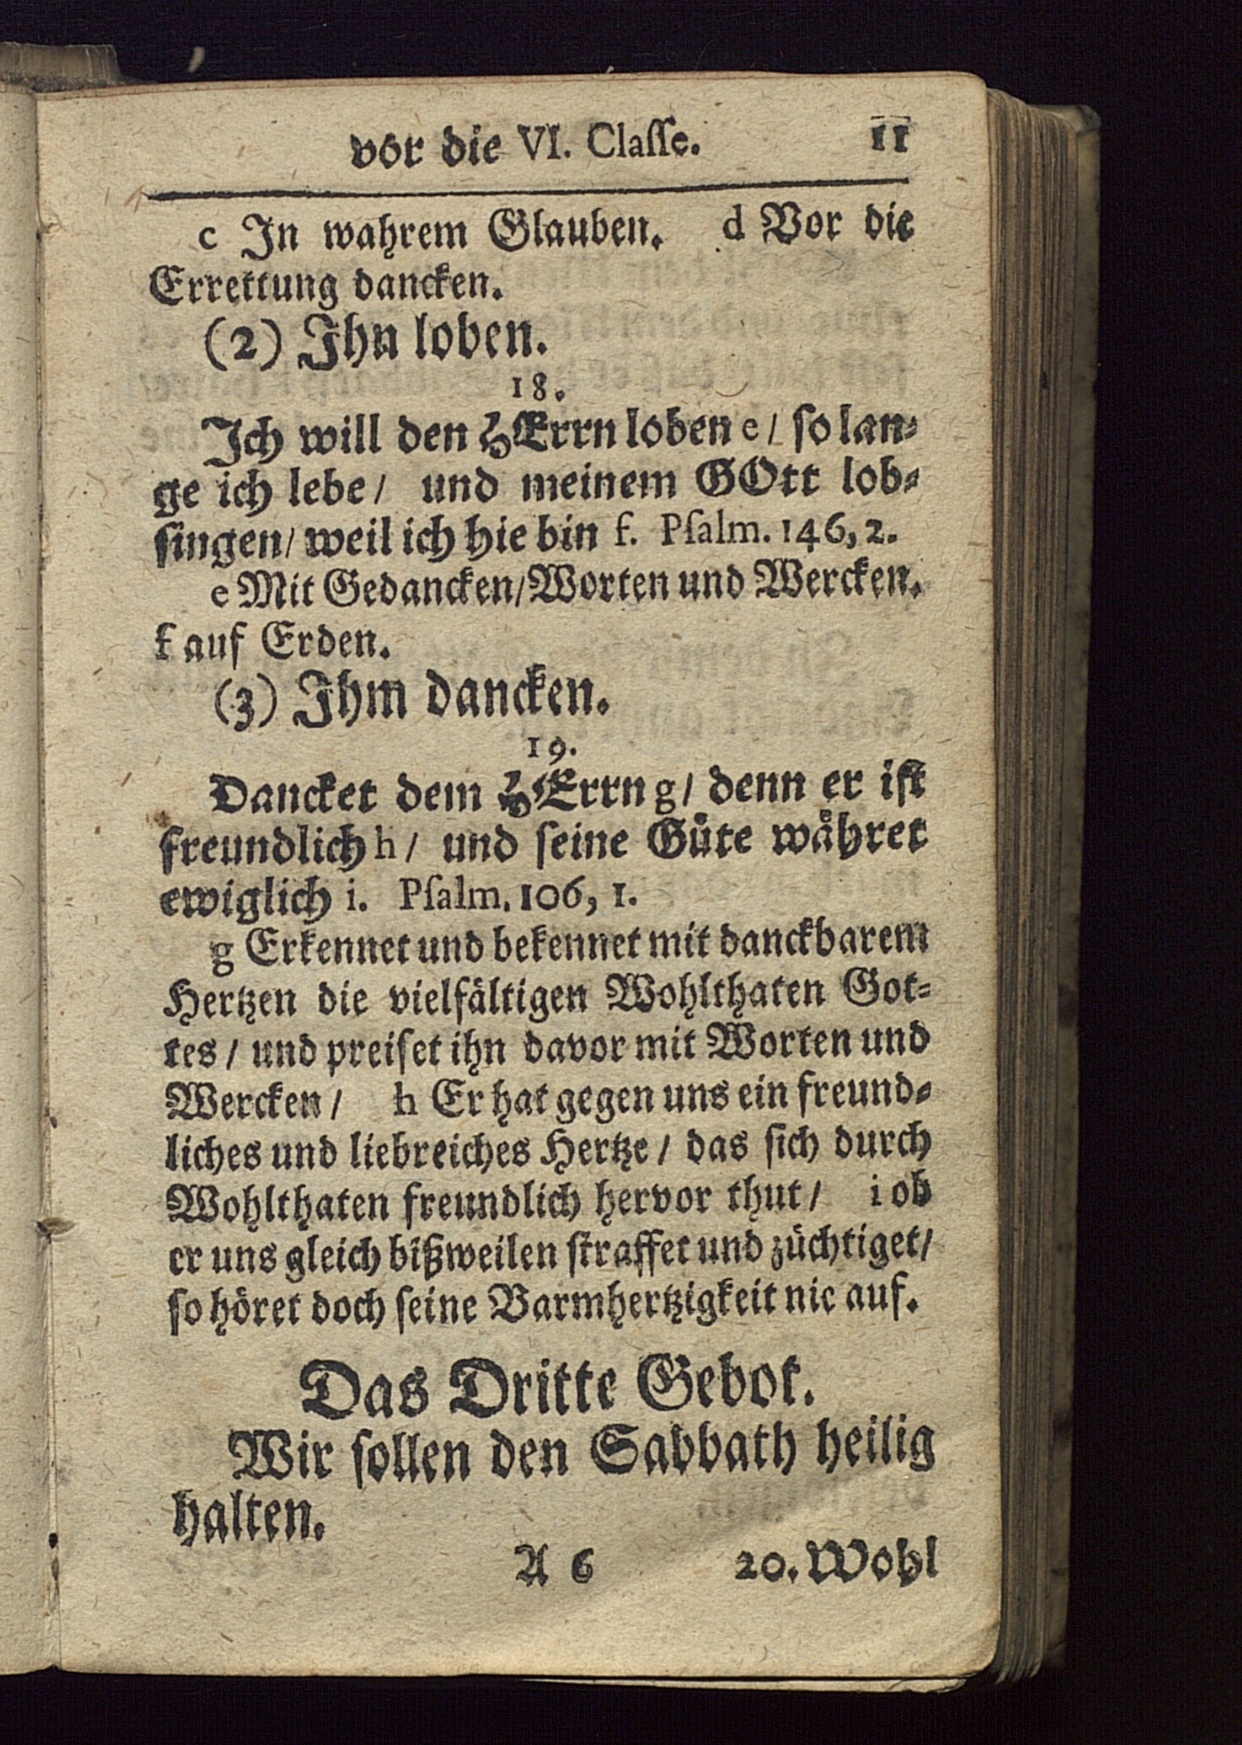 vor die VI. Classe. 11
c In wahrem Glauben. d Vor die
Errettung dancken.
(2) Ihn loben.
18.
Ich will den HErrn loben e/ so lan⸗
ge ich lebe/ und meinem GOtt lob⸗
singen/ weil ich hie bin f. Psalm. 146, 2.
e Mit Gedancken/Worten und Wercken.
f auf Erden.
(3) Ihm dancken.
19.
Dancket dem HErrn g/ denn er ist
freundlich h/ und seine Güte währet
ewiglich i. Psalm. 106, 1.
g Erkennet und bekennet mit danckbarem
Hertzen die vielfältigen Wohlthaten Got⸗
tes/ und preiset ihn davor mit Worten und
Wercken/ h Er hat gegen uns ein freund⸗
liches und liebreiches Hertze/ das sich durch
Wohlthaten freundlich hervor thut/ i ob
er uns gleich bißweilen straffet und züchtiget/
so höret doch seine Barmhertzigkeit nie auf.
Das Dritte Gebot.
Wir sollen den Sabbath heilig
halten.
A 6 20. Wohl